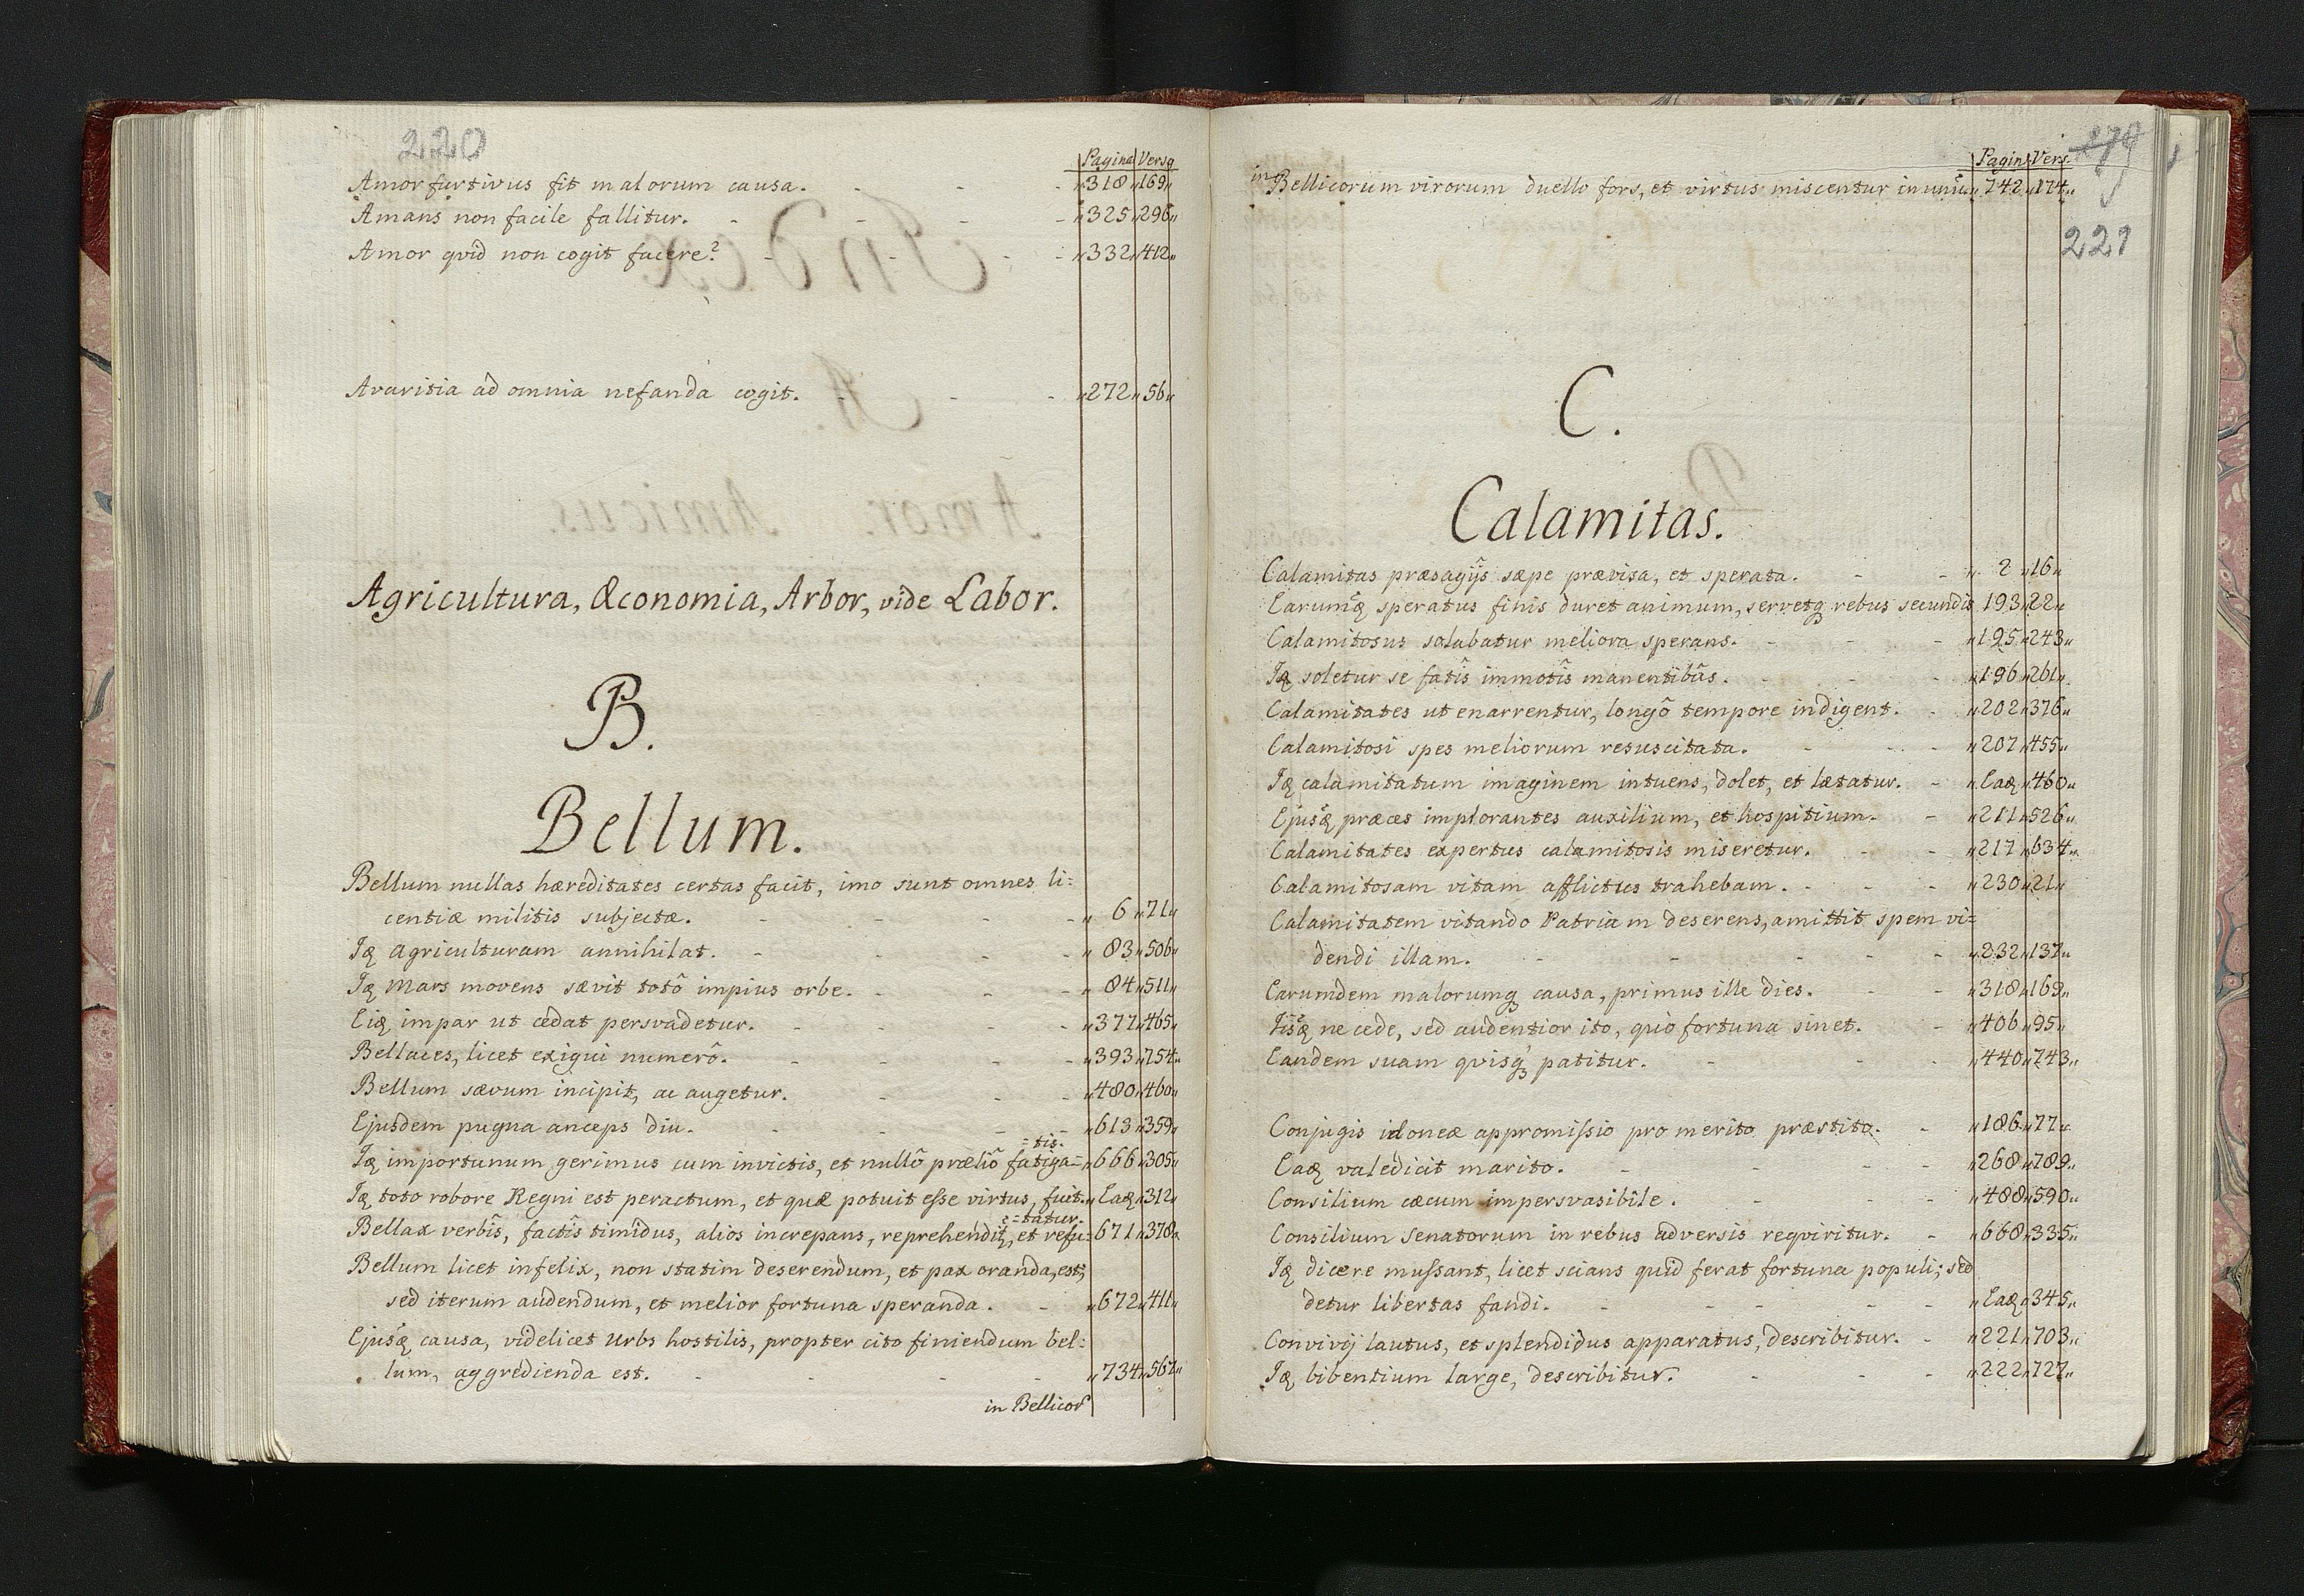 220
Pagina Versq
Amor furtivus fit malorum causa. - - - „318„169„
Amans non facile fallitur. - - - - „325„296„
Amor qvid non cogit facere? - - - - „332„412„
Avaritia ad omnia nefanda cogit. - - - „272„56„
Agricultura, Œconomia, Arbor, vide Labor.
B.
Bellum.
Bellum nullas hæreditates certas facit, imo sunt omnes li=
centiæ militis subjectæ. - - - - „ 6„71„
Iq agriculturam annihilat. - - - - „ 83„506„
Iq Mars movens sævit totô impius orbe. - - - „ 84„511„
Eiq impar ut cedat persvadetur. - - - - „377„465„
Bellaces, licet exigui numerô. - - - - „393„754„
Bellum sævum incipit, ac augetur. - - - „480„460„
Ejusdem pugna anceps diu. - - - - „613„359„
=tis.
Iq importunum gerimus cum invictis, et nullô præliô fatiga= „666„305„
Iq toto robore Regni est peractum, et quæ potuit eſse virtus, fuit. „Eaq„312„
=tatur.
Bellax verbîs, factîs timidus, alios increpans, reprehenditq, et refu= 671„378„
Bellum licet infelix, non statim deserendum, et pax oranda, est;
sed iterum audendum, et melior fortuna speranda. - „672„411„
Ejusq causa, videlicet Urbs hostilis, propter cito finiendum bel=
lum, aggredienda est. - - - - „734„567„
in Bellicor
279
221
Pagina Vers
in Bellicorum virorum duello fors, et virtus miscentur in unũ. „742„174„
C.
Calamitas.
Calamitas præsagijs sæpe prævisa, et sperata. - - „ 2„16„
Earumq speratus finis duret animum, servetq rebus secundis 193„22„
Calamitosus solabatur meliora sperans. - - - „195„243„
Iq soletur se fatîs immotîs manentibûs. - - - „196„261„
Calamitates ut enarrentur, longô tempore indigent. - „202„376„
Calamitosi spes meliorum resuscitata. - - - „207„455„
Iq calamitatum imaginem intuens, dolet, et lætatur. - „Eaq„460„
Ejusq præces implorantes auxilium, et hospitium. - „211„526„
Calamitates expertus calamitosis miseretur. - - „217„634„
Calamitosam vitam afflictus trahebam. - - - „230„21„
Calamitatem vitando Patriam deserens, amittit spem vi=
dendi illam. - - - - - „232„137„
Earumdem malorumq causa, primus ille dies. - - „318„169„
Iisq ne cede, sed audentior ito, quò fortuna sinet. - „406„95„
Eandem suam qvisq patitur. - - - „440„743„
Conjugis idoneæ appromiſsio pro merito præstito. - „186„77„
Eaq valedicit marito. - - - - „268„789„
Consilium cæcum impersvasibile. - - - „488„590„
Consilium Senatorum in rebus adversis reqviritur. - „668„335„
Iq dicere muſsant, licet scians quid ferat fortuna populi; sed
detur libertas fandi. - - - - - „Eaq„345„
Convivij lautus, et splendidus apparatus, describitur. - „221„703„
Iq bibentium large, describitur. - - - „222„727„